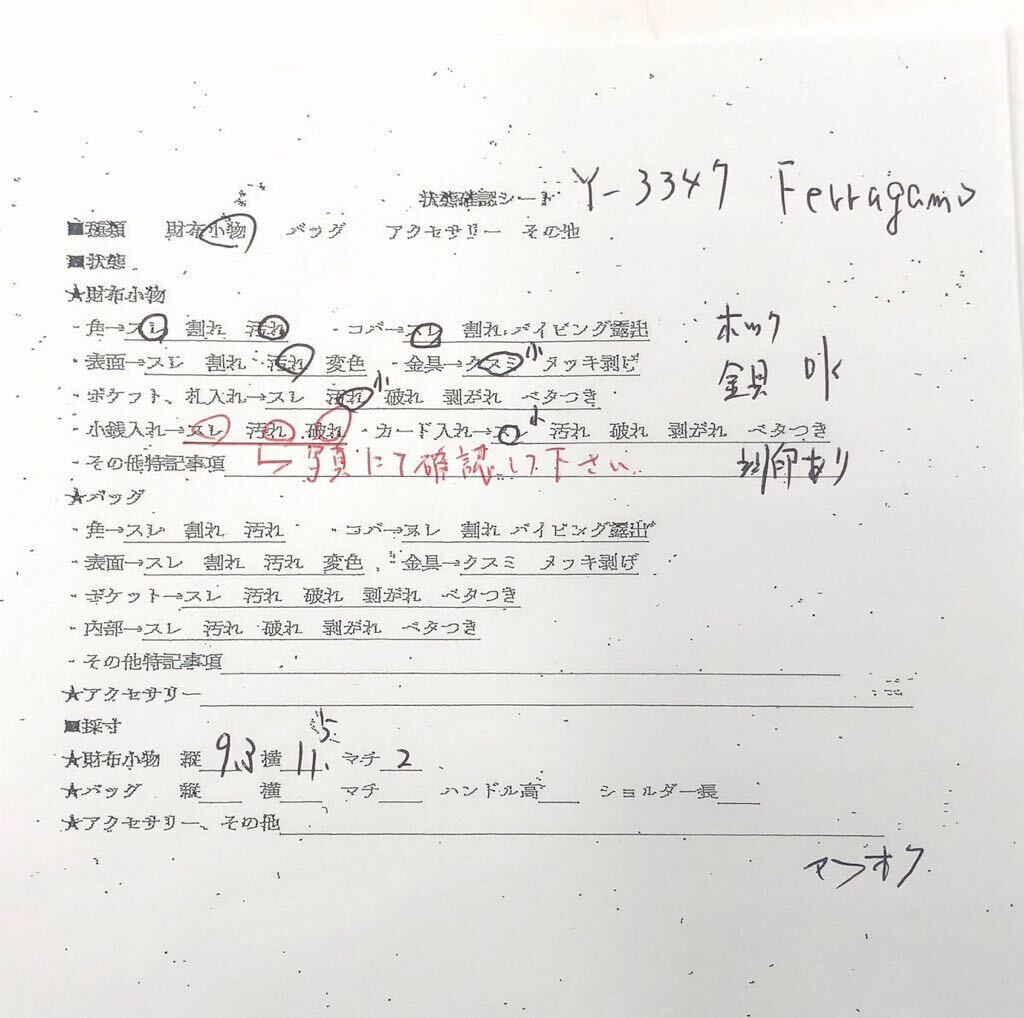 状態確認シート Y-3347 Ferragamo
■種類 財布小物 バッグ アクセサリー その他
■状態
★財布小物
・角→スレ 割れ 汚れ ・コバ→スレ 割れ パイピング露出 ホック
・表面→スレ 割れ 汚れ 変色 ・金具→クスミ小 メッキ剥げ 金具 OK
・ポケット、札入れ→スレ 汚れ小 破れ 剥がれ ベタつき
・小銭入れ→スレ 汚れ 破れ ・カード入れ→スレ小 汚れ 破れ 剥がれ ベタつき
・その他特記事項 写真にて確認して下さい 刻印あり
★バッグ
・角→スレ 割れ 汚れ ・コバ→スレ 割れ パイピング露出
・表面→スレ 割れ 汚れ 変色 ・金具→クスミ メッキ剥げ
・ポケット→スレ 汚れ 破れ 剥がれ ベタつき
・内部→スレ 汚れ 破れ 剥がれ ベタつき
・その他特記事項
★アクセサリー
■採寸
★財布小物 縦 9.3 横 11.5 マチ 2
★バッグ 縦 横 マチ ハンドル高 ショルダー長
★アクセサリー、その他